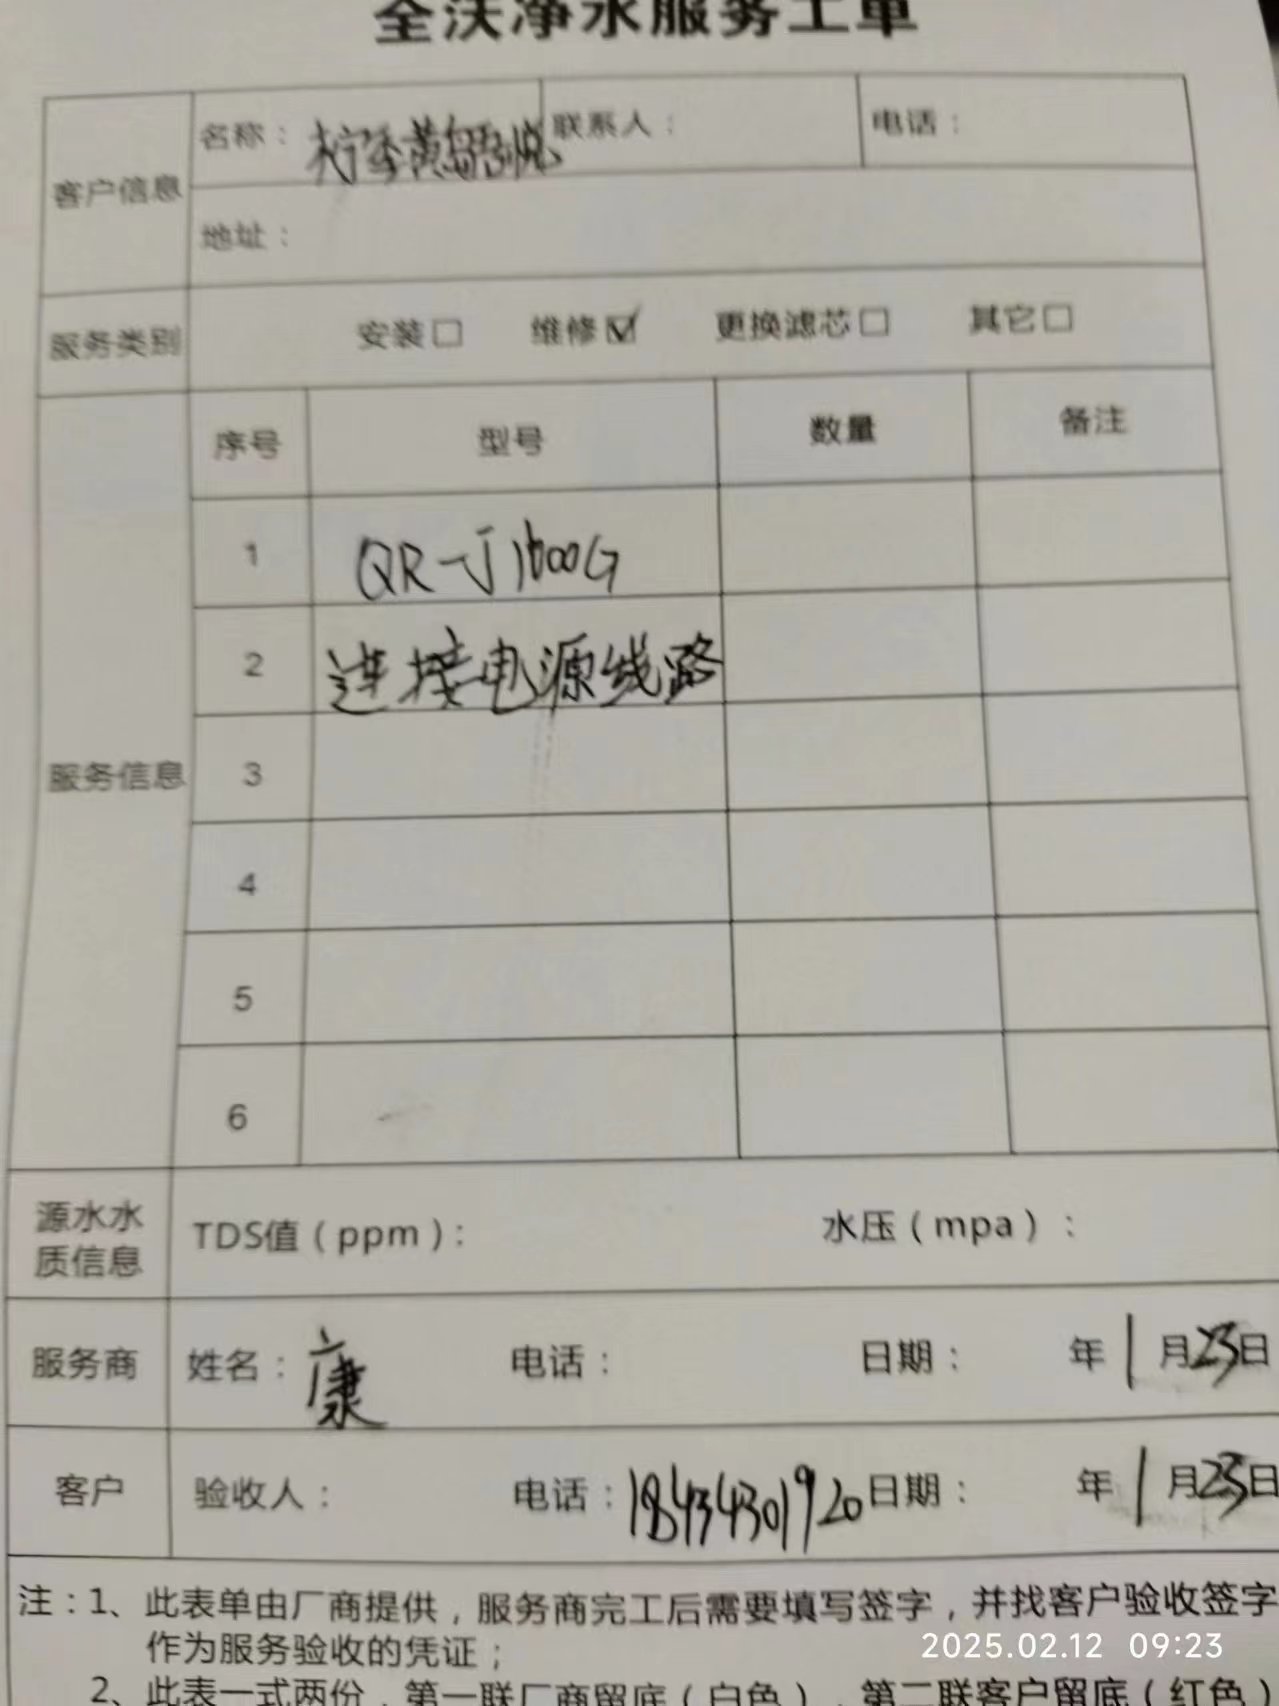 全沃净水服务工单
客户信息
名称： 柠季黄岛吾悦
联系人：
电话：
地址：
服务类别
安装□ 维修☑ 更换滤芯□ 其它□
服务信息
序号 型号 数量 备注
1 QR-J1600G
2 连接电源线路
3
4
5
6
源水水质信息
TDS值（ppm）： 水压（mpa）：
服务商 姓名：康 电话： 日期： 年1月23日
客户 验收人： 电话：18434301920 日期： 年1月23日
注：1、此表单由厂商提供，服务商完工后需要填写签字，并找客户验收签字
作为服务验收的凭证；
2、此表一式两份，第一联厂商留底（白色），第二联客户留底（红色）
2025.02.12 09:23